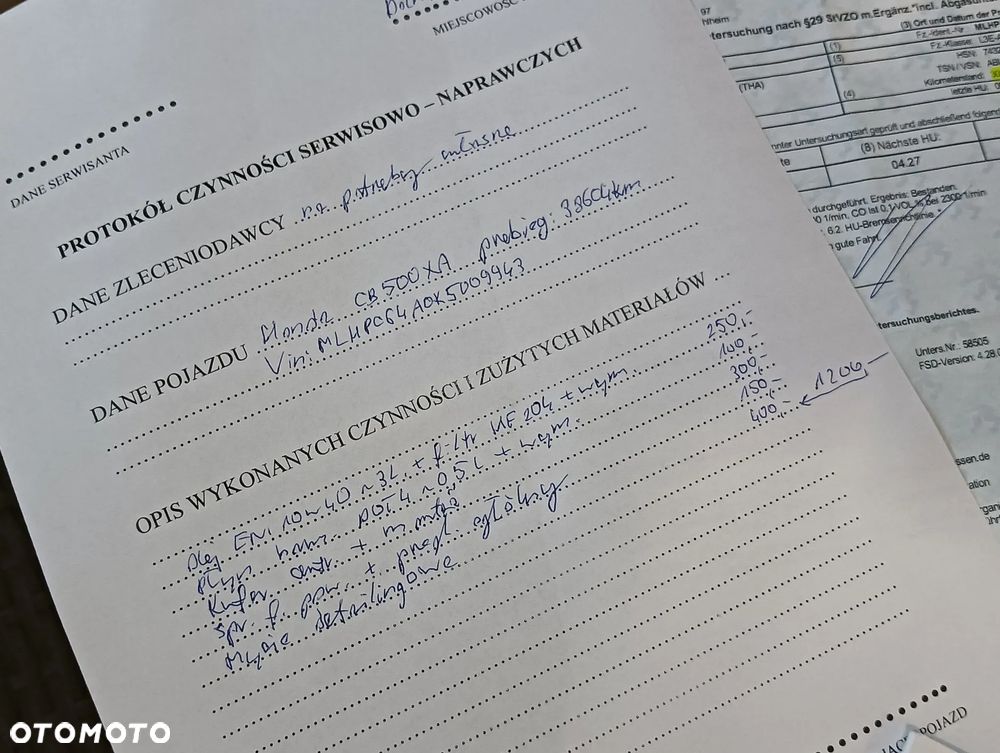 MIEJSCOWOŚĆ
DANE SERWISANTA
PROTOKÓŁ CZYNNOŚCI SERWISOWO – NAPRAWCZYCH
DANE ZLECENIODAWCY n.a. potrzeby własne
DANE POJAZDU Honda CB500XA przebieg: 33604km
Vin: MLHPC64A0K5009943
OPIS WYKONANYCH CZYNNOŚCI I ZUŻYTYCH MATERIAŁÓW
Olej ENI 10W40 ~3L + filtr HF204 + wym. 250,-
Płyn ham. DOT4 ~0,5L + wym. 100,-
Kufer centr. + 300,-
spr. f. pow. + przegl. ogólny 150,-
Mycie detailingowe 400,-
1200,-
POJAZD
97
tersuchung nach §29 StVZO m.Ergänz.*incl. Abgasunter
(3) Ort und Datum der
(1) Fz.-Ident.-Nr MLHP
(5) Fz-Klasse: L3E-A
HSN:
(THA) TSN / VSN:
Kilometerstand:
(4) letzte HU:
nnter Untersuchungsart geprüft und abschließend folgend
(8) Nächste HU:
04.27
durchgeführt. Ergebnis: Bestanden.
00 1/min, CO ist 0,1VOL % bei 2300 1/min
6.2. HU-Bremsenrichtlinie.
gute Fahrt
tersuchungsberichtes.
Unters.Nr.: 58505
FSD-Version: 4.28.0
ssen.de
ation
OTOMOTO